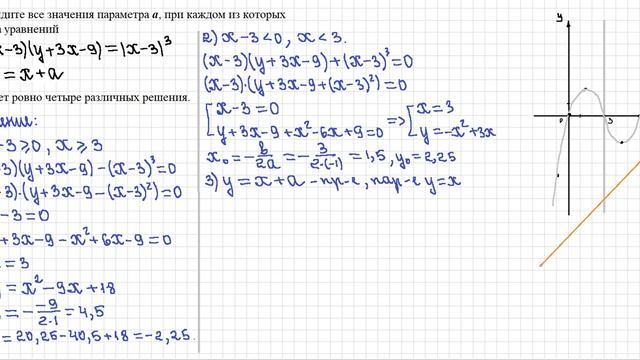 дите все значения параметра а, при каждом из которых
а уравнений
-3)(y+3x-9)=|x-3|³
= x+a
ет ровно четыре различных решения.
ение:
-3≥0, x≥3
-3)(y+3x-9)-(x-3)³=0
-3)·(y+3x-9-(x-3)²)=0
-3=0
+3x-9-x²+6x-9=0
= 3
= x²-9x+18
= - -9/2·1 = 4,5
= 20,25-40,5+18=-2,25.
2) x-3<0, x<3.
(x-3)(y+3x-9)+(x-3)³=0
(x-3)·(y+3x-9+(x-3)²)=0
[x-3=0 => [x=3
y+3x-9+x²-6x+9=0 y=-x²+3x
x₀=-b/2a=-3/2·(-1)=1,5, y₀=2,25
3) y=x+a - пр-е, пар-е y=x
y
0 3